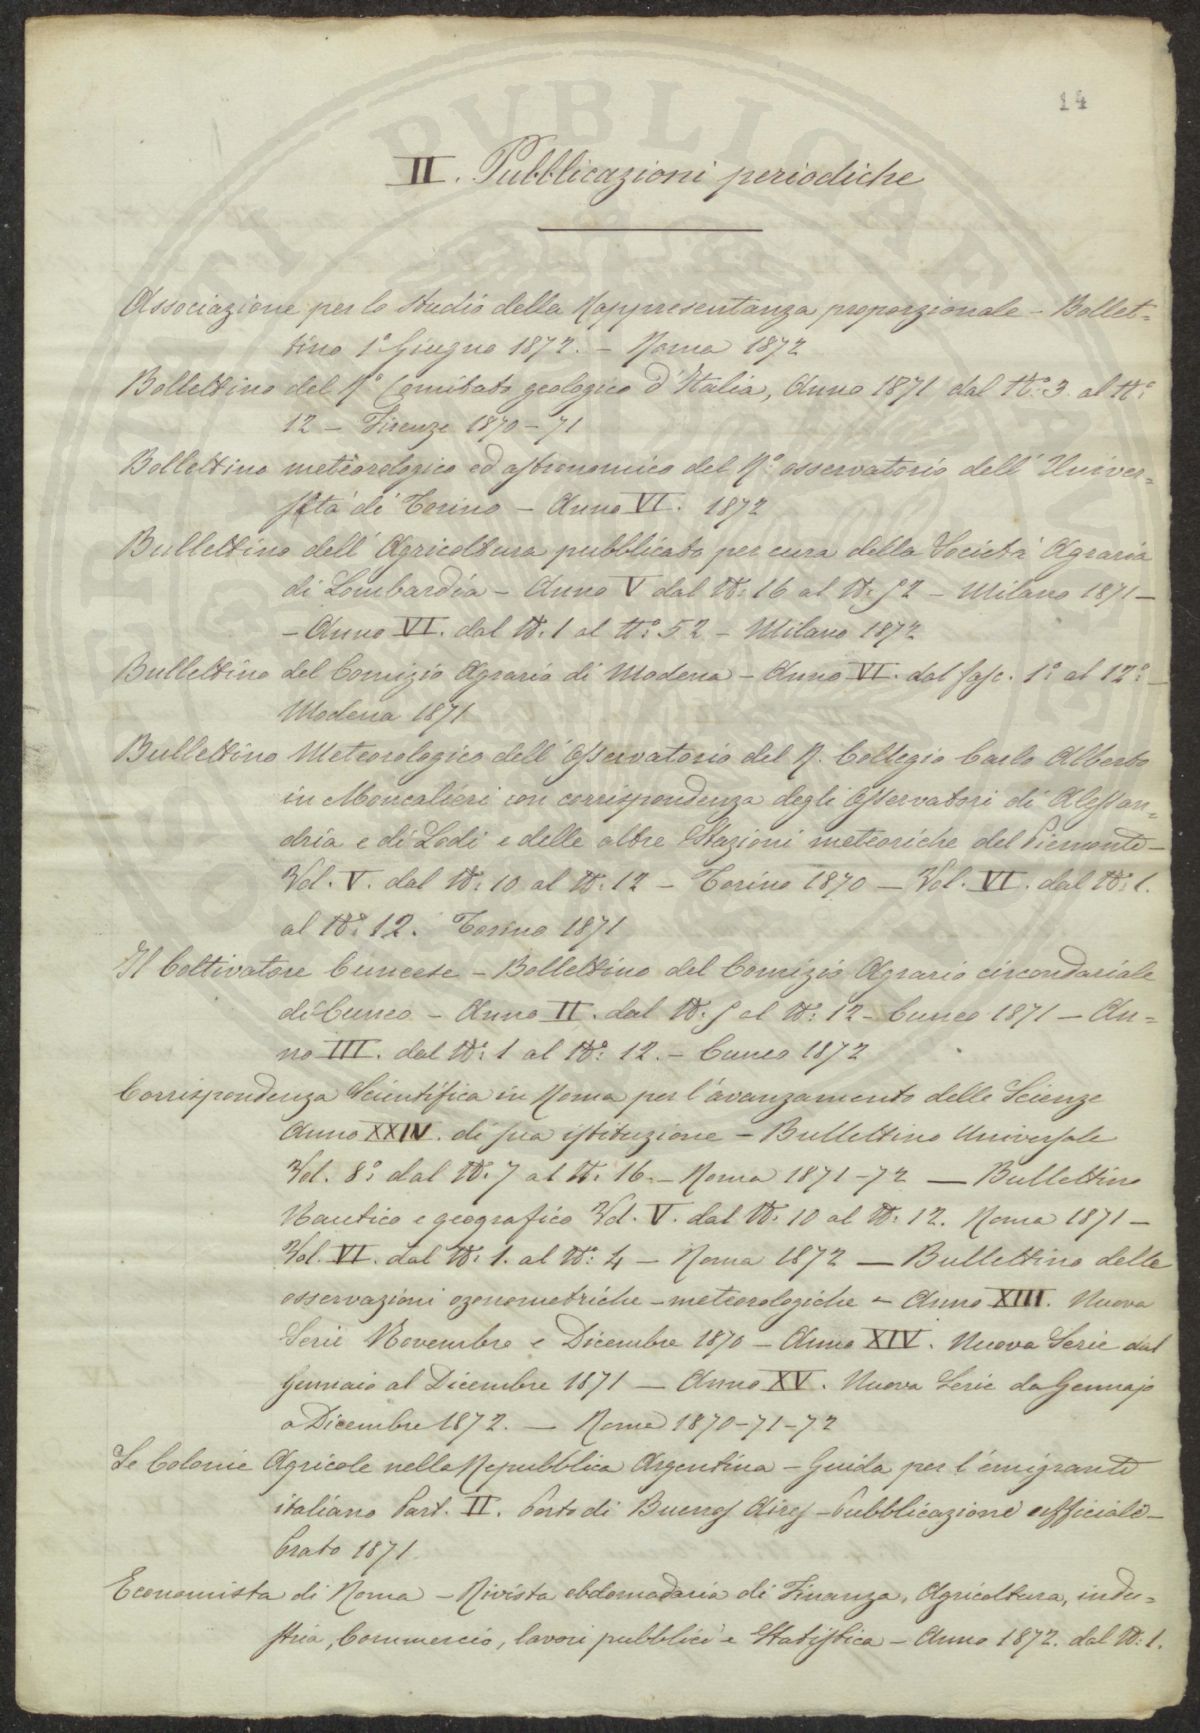 14
II. Pubblicazioni periodiche
Associazione per lo studio della Rappresentanza proporzionale - Bollet=
tino 1° Giugno 1872. - Roma 1872
Bollettino del R° Comitato geologico d'Italia, Anno 1871 dal N° 3. al N°
12 - Firenze 1870-71
Bollettino meteorologico ed astronomico del R° osservatorio dell' Univer=
sità di Torino - Anno VI. 1872
Bullettino dell' Agricoltura pubblicato per cura della Società Agraria
di Lombardia - Anno V dal N: 16 al N: 52 - Milano 1871 -
- Anno VI. dal N. 1 al N° 52 - Milano 1872
Bullettino del Comizio Agrario di Modena - Anno VI. dal fasc. 1° al 12° -
Modena 1871
Bullettino Meteorologico dell' Osservatorio del R. Collegio Carlo Alberto
in Moncalieri con corrispondenza degli Osservatori di Alessan=
dria e di Lodi e delle altre Stazioni meteoriche del Piemonte -
Vol. V. dal N: 10 al N: 12 - Torino 1870 - Vol. VI. dal N: 1.
al N° 12. Torino 1871
Il Coltivatore Cuneese - Bollettino del Comizio Agrario circondariale
di Cuneo - Anno II. dal N. 5 al N: 12 - Cuneo 1871 - An=
no III. dal N: 1 al N: 12. - Cuneo 1872
Corrispondenza Scientifica in Roma per l'avanzamento delle Scienze
Anno XXIV. di sua istituzione - Bullettino Universale
Vol. 8° dal N: 7 al N: 16 - Roma 1871-72 — Bullettino
Nautico e geografico Vol. V. dal N: 10 al N: 12. Roma 1871 -
Vol. VI. dal N: 1. al N: 4 - Roma 1872 — Bullettino delle
osservazioni ozonometriche - meteorologiche - Anno XIII. Nuova
Serie Novembre e Dicembre 1870 - Anno XIV. Nuova Serie dal
Gennaio al Dicembre 1871 - Anno XV. Nuova Serie da Gennajo
a Dicembre 1872. — Roma 1870-71-72
Le Colonie Agricole nella Repubblica Argentina - Guida per l'emigrante
italiano Part. II. Porto di Buenos Aires - Pubblicazione officiale -
Prato 1871.
Economista di Roma - Rivista ebdomadaria di Finanza, Agricoltura, indu=
stria, Commercio, lavori pubblici e Statistica - Anno 1872. dal N: 1.